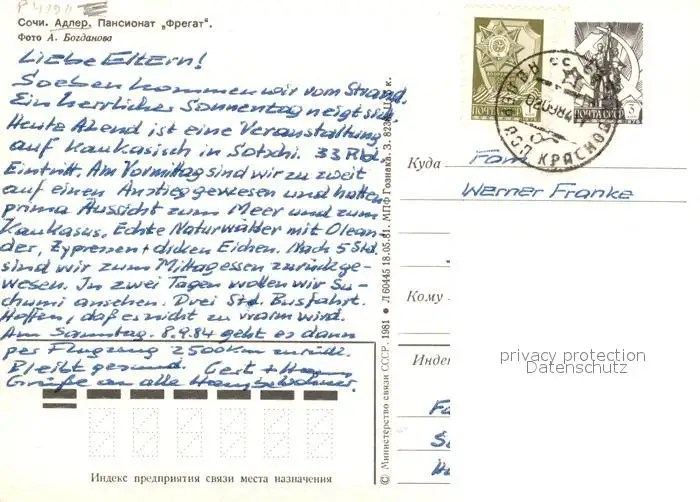 P 4191
Сочи. Адлер. Пансионат „Фрегат".
Фото А. Богданова
Liebe Eltern!
Soeben kommen wir vom Strand.
Ein herrlicher Sonnentag neigt sich.
Heute Abend ist eine Veranstaltung
auf Kaukasisch in Sotschi. 33 Rbl.
Eintritt. Am Vormittag sind wir zu zweit
auf einen Anstieg gewesen und hatten
prima Aussicht zum Meer und zum
Kaukasus. Echte Naturwälder mit Olean-
der, Zypressen + dicken Eichen. Nach 5 Std.
sind wir zum Mittagessen zurückge-
wesen. In zwei Tagen wollen wir Su-
chumi ansehen. Drei Std. Busfahrt.
Hoffen, daß es nicht zu warm wird.
Am Sonnabend 8.9.84 geht es dann
per Flugzeug 2500 km zurück.
Bleibt gesund. Gert +
Grüße an alle Hausbewohner.
Индекс предприятия связи места назначения
© Министерство связи СССР. 1981 • Л 60445 18.05.81. МПФ Гознака. З. ц. 4 к.
ПОЧТА СССР
ПОЧТА СССР
3
Куда
Fam
Werner Franke
Кому
Индек
privacy protection
Datenschutz
Fa